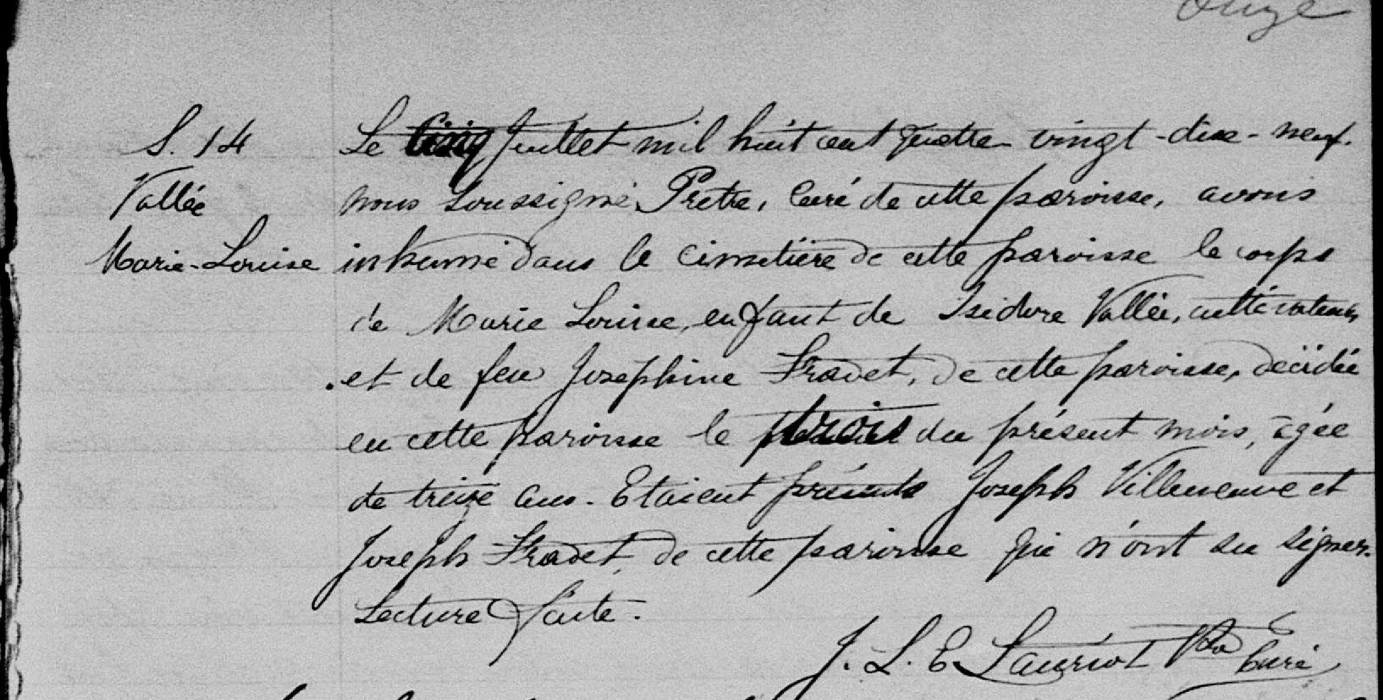 Onze
S. 14
Vallée
Marie-Louise
Le cinq Juillet mil huit cent quatre vingt-dix-neuf.
nous soussigné, Prêtre, curé de cette paroisse, avons
inhumé dans le cimetière de cette paroisse le corps
de Marie Louise, enfant de Isidore Vallée, cultivateur
et de feu Josephine Fradet, de cette paroisse, décédée
en cette paroisse le trois du présent mois, agée
de treize ans. Etaient présents Joseph Villeneuve et
Joseph Fradet, de cette paroisse qui n'ont su signer.
Lecture faite.
J. L. E Lauriot Ptre Curé